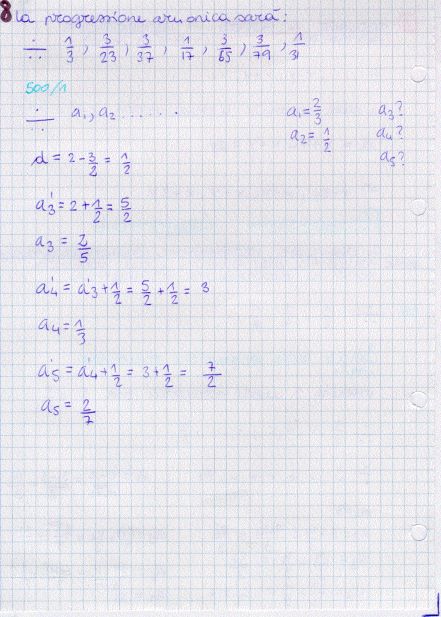 8 la progressione armonica sarà:
÷ 1/3, 3/23, 3/37, 1/17, 3/65, 3/79, 1/31
500/1
÷ a₁, a₂ ....... a₁ = 2/3 a₃?
a₂ = 1/2 a₄?
a₅?
d = 2 - 3/2 = 1/2
a'₃ = 2 + 1/2 = 5/2
a₃ = 2/5
a'₄ = a'₃ + 1/2 = 5/2 + 1/2 = 3
a₄ = 1/3
a'₅ = a'₄ + 1/2 = 3 + 1/2 = 7/2
a₅ = 2/7